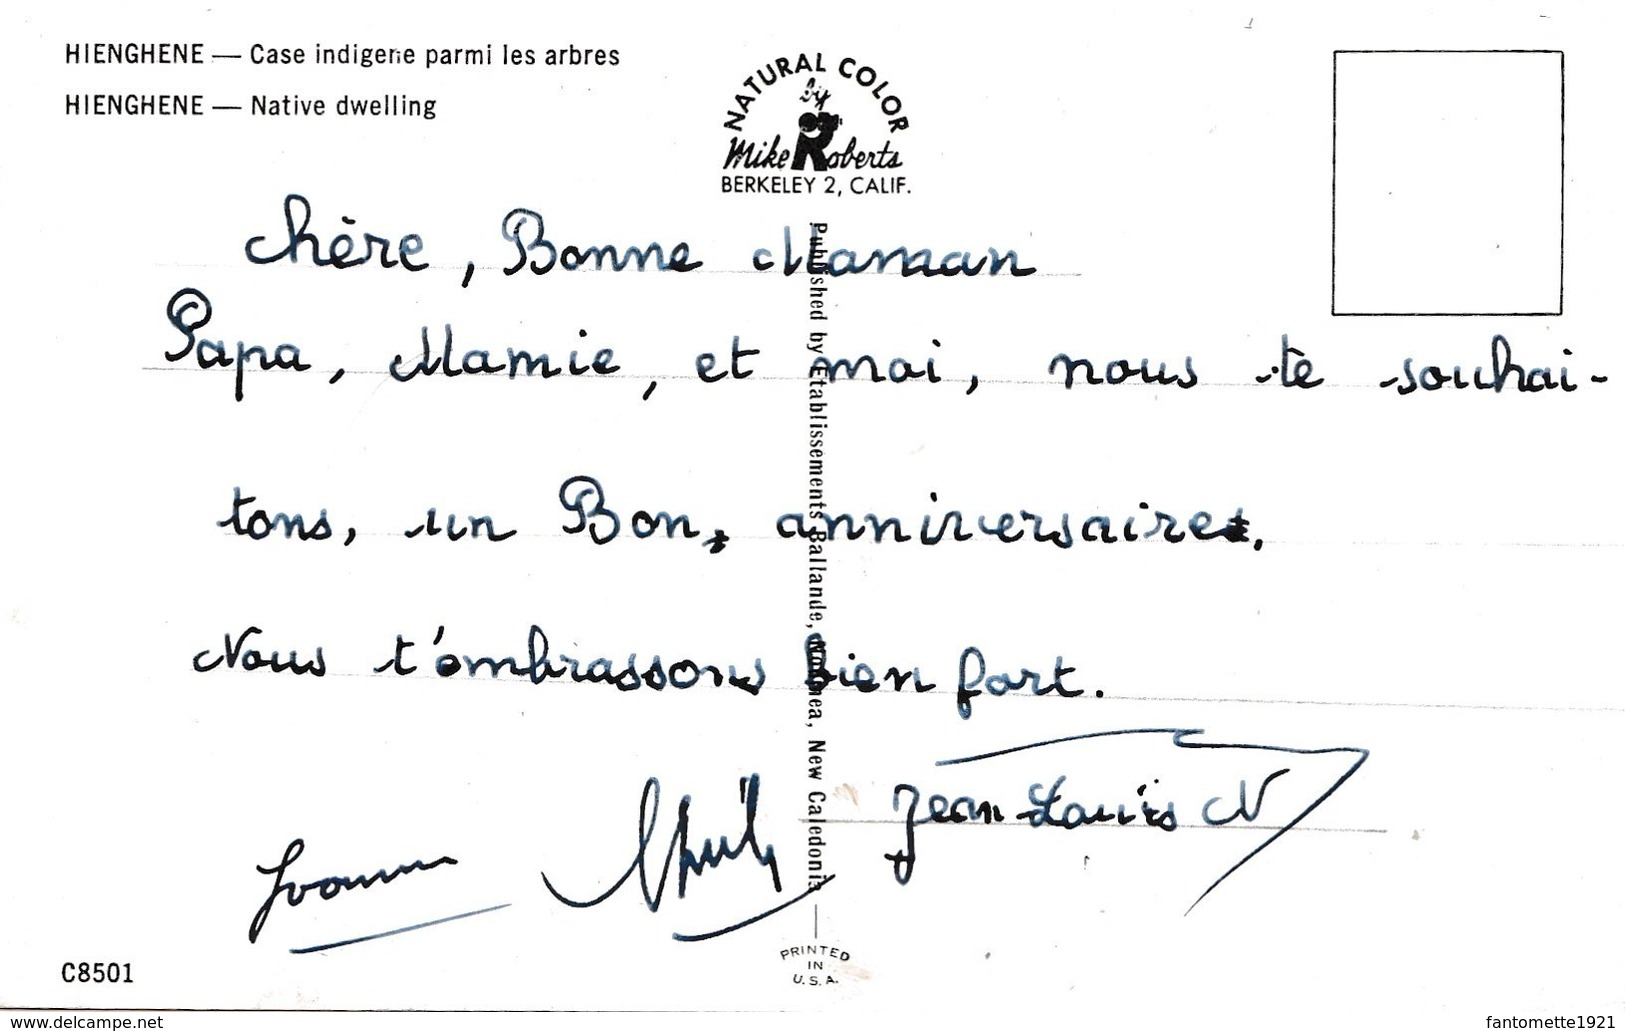 HIENGHENE — Case indigene parmi les arbres
HIENGHENE — Native dwelling
NATURAL COLOR
by
Mike Roberts
BERKELEY 2, CALIF.
Chère, Bonne Maman
Papa, Mamie, et moi, nous te souhai-
tons, un Bon, anniversaire.
Nous t'embrassons bien fort.
Jean-Louis N
Published by Etablissements Ballande, Noumea, New Caledonia
PRINTED
IN
U.S.A.
C8501
www.delcampe.net
fantomette1921